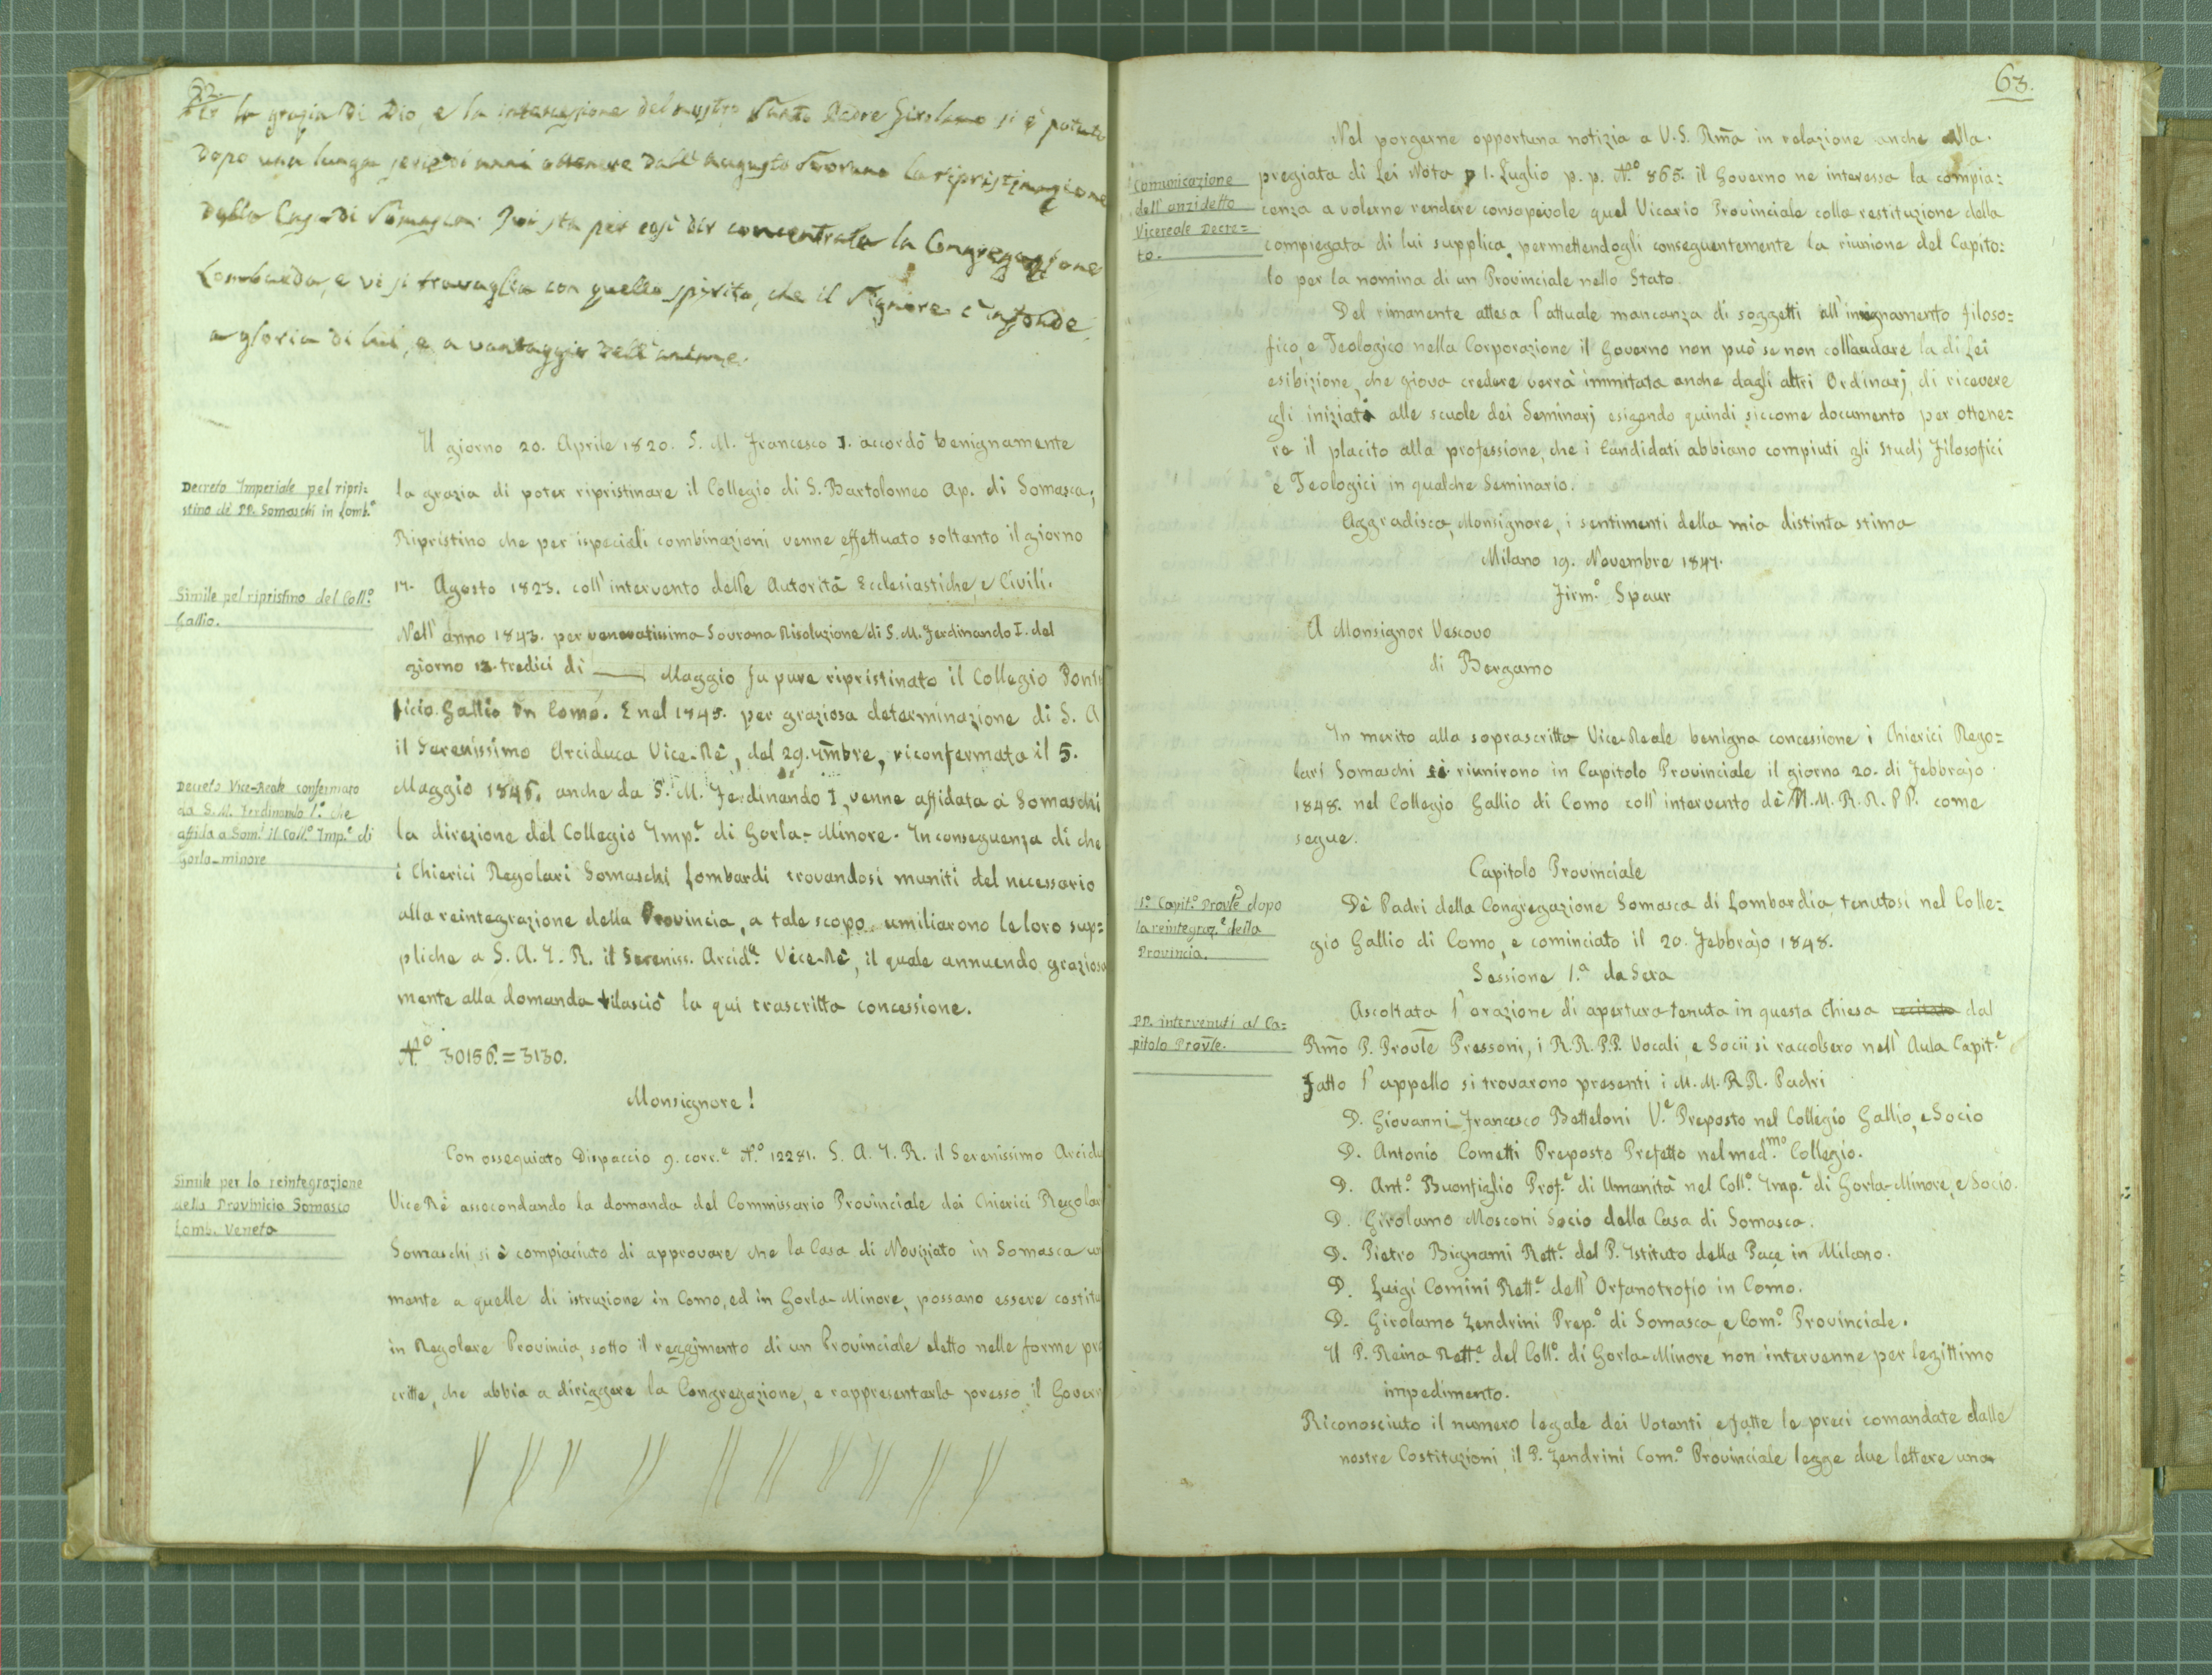 62.
Per la grazia di Dio, e la intercessione del nostro Santo Padre Girolamo si è potuto
dopo una lunga serie di anni ottenere dall'augusto Sovrano la ripristinazione
della Casa di Somasca. Ivi sta per così dir concentrata la Congregazione
Lombarda, e vi si travaglia con quello spirito, che il Signore c'infonde
a gloria di lui, e a vantaggio dell'anime.
Il giorno 20. Aprile 1820. S. M. Francesco I. accordò benignamente
Decreto Imperiale pel ripri=
stino di PP. Somaschi in Lomb.ª
la grazia di poter ripristinare il Collegio di S. Bartolomeo Ap. di Somasca;
Ripristino che per ispeciali combinazioni venne effettuato soltanto il giorno
17. Agosto 1823. coll'intervento delle Autorità Ecclesiastiche, e Civili.
Simile pel ripristino del Coll.º
Gallio.
Nell'anno 1843. per veneratissima Sovrana Risoluzione di S. M. Ferdinando I. del
giorno 13. tredici di Maggio fu pure ripristinato il Collegio Ponti
ficio Gallio in Como. E nel 1845. per graziosa determinazione di S. A
il Serenissimo Arciduca Vice-Rè, del 29. mbre, riconfermata il 5.
Decreto Vice-Reale confermato
da S. M. Ferdinando I.º che
affida a Som.i il Coll.º Imp.e di
Gorla-minore
Maggio 1846. anche da S. M. Ferdinando I, venne affidata a' Somaschi
la direzione del Collegio Imp.e di Gorla-Minore. In conseguenza di che
i Chierici Regolari Somaschi Lombardi trovandosi muniti del necessario
alla reintegrazione della Provincia, a tale scopo umiliarono le loro sup=
pliche a S. A. I. R. il Sereniss. Arcid.ª Vice-Rè, il quale annuendo graziosa
mente alla domanda rilasciò la qui trascritta concessione.
N.º 30156.=3130.
Monsignore!
Con ossequiato Dispaccio 9. corr.e N.º 12281. S. A. I. R. il Serenissimo Arcidu
Simile per la reintegrazione
della Provincia Somasca
Lomb. Veneta
Vice Rè assecondando la domanda del Commissario Provinciale dei Chierici Regolar
Somaschi si è compiaciuto di approvare che la Casa di Noviziato in Somasca un
mente a quelle di istruzione in Como, ed in Gorla-Minore, possano essere costitu
in Regolare Provincia, sotto il reggimento di un Provinciale eletto nelle forme pre
critte, che abbia a diriggere la Congregazione, e rappresentarla presso il Govern
63.
Nel porgerne opportuna notizia a V. S. Rm̃a in relazione anche alla
Comunicazione
dell'anzidetto
Vicereale Decre=
to.
pregiata di Lei Nota 1. Luglio p. p. N.º 865. il Governo ne interessa la compia=
cenza a volerne rendere consapevole quel Vicario Provinciale colla restituzione della
compiegata di lui supplica, permettendogli conseguentemente la riunione del Capito=
lo per la nomina di un Provinciale nello Stato.
Del rimanente attesa l'attuale mancanza di soggetti all'insegnamento filoso=
fico, e Teologico nella Corporazione il Governo non può se non collaudare la di Lei
esibizione, che giova credere verrà immitata anche dagli altri Ordinarj di ricevere
gli iniziati alle scuole dei Seminarj esigendo quindi siccome documento per ottene=
re il placito alla professione, che i Candidati abbiano compiuti gli studj Filosofici
e Teologici in qualche Seminario.
Aggradisca, Monsignore, i sentimenti della mia distinta stima
Milano 19. Novembre 1847.
Firm.º Spaur
A Monsignor Vescovo
di Bergamo
In merito alla soprascritta Vice-Reale benigna concessione i Chierici Rego=
lari Somaschi si riunirono in Capitolo Provinciale il giorno 20. di Febbrajo
1848. nel Collegio Gallio di Como coll'intervento dè M. M. R. R. PP. come
segue.
Capitolo Provinciale
1.º Capit.º Provle dopo
la reintegraz.e della
Provincia.
Dè Padri della Congregazione Somasca di Lombardia, tenutosi nel Colle=
gio Gallio di Como, e cominciato il 20. Febbrajo 1848.
Sessione 1.ª da Sera
Ascoltata l'orazione di apertura tenuta in questa Chiesa recitata dal
PP. intervenuti al Ca=
pitolo Provle.
Rm̃o P. Provle Pressoni, i R.R. P.P. Vocali, e Socii si raccolsero nell'Aula Capit.e
Fatto l'appello si trovarono presenti i M. M. RR. Padri
D. Giovanni Francesco Betteloni V.e Preposto nel Collegio Gallio, e Socio
D. Antonio Cometti Preposto Prefetto nel med.mo Collegio.
D. Ant.º Buonfiglio Prof.e di Umanità nel Coll.º Imp.e di Gorla-Minore, e Socio.
D. Girolamo Mosconi Socio della Casa di Somasca.
D. Pietro Bignami Rett.e del P. Istituto della Pace in Milano.
D. Luigi Comini Rett.e dell'Orfanotrofio in Como.
D. Girolamo Zendrini Prep.º di Somasca, e Com.º Provinciale.
Il P. Reina Rett.e del Coll.º di Gorla-Minore non intervenne per legittimo
impedimento.
Riconosciuto il numero legale dei Votanti e fatte le preci comandate dalle
nostre Costituzioni, il P. Zendrini Com.º Provinciale legge due lettere una